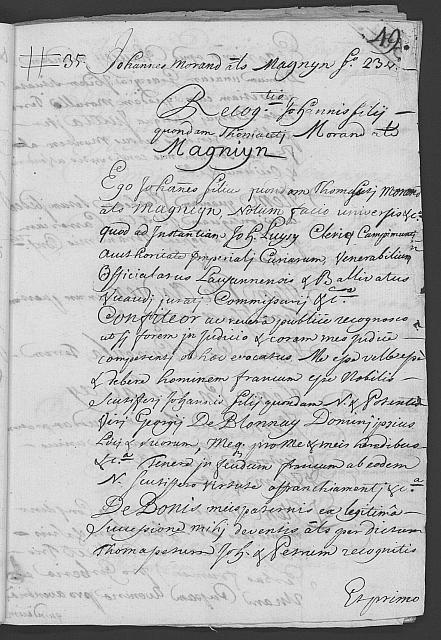 49.
35. Johannes Morand als Magnyn fo. 234.
Recog.tio Johannis filij
quondam Thomasetj Morand als
Magniyn
Ego Johanes filius quondam Thomassetj Morand
als Magniyn Notum facio universis &c.a
quod ad Instantiam Joh. Clerici
Authoritate Imperialj Curiarum, Venerabilium
Officialatus Lausannensis & Ballivatus
Vicaudj juratj Commissarij & C.a
Confiteor ac revera publice recognosco
ac si forem in judicio & coram meo judice
competentj ob hoc evocatus, Me esse velle esse
& debere hominem francum esse Nobilis
Scutifferj Johannis filij quondam N. & Potentis
Virj Georgij De Blonnay Dominj ipsius
Locj & suorum, Meq. pro Me & meis heredibus
& C.a Tenere in feudum francum ab eodem
N. Scutiffero virtute affranchiamentj & C.a
De Bonis meis paternis ex legitima
Successione mihj deventis als per dictum
Thomassetum Joh. & Petrum recognitis
Et primo